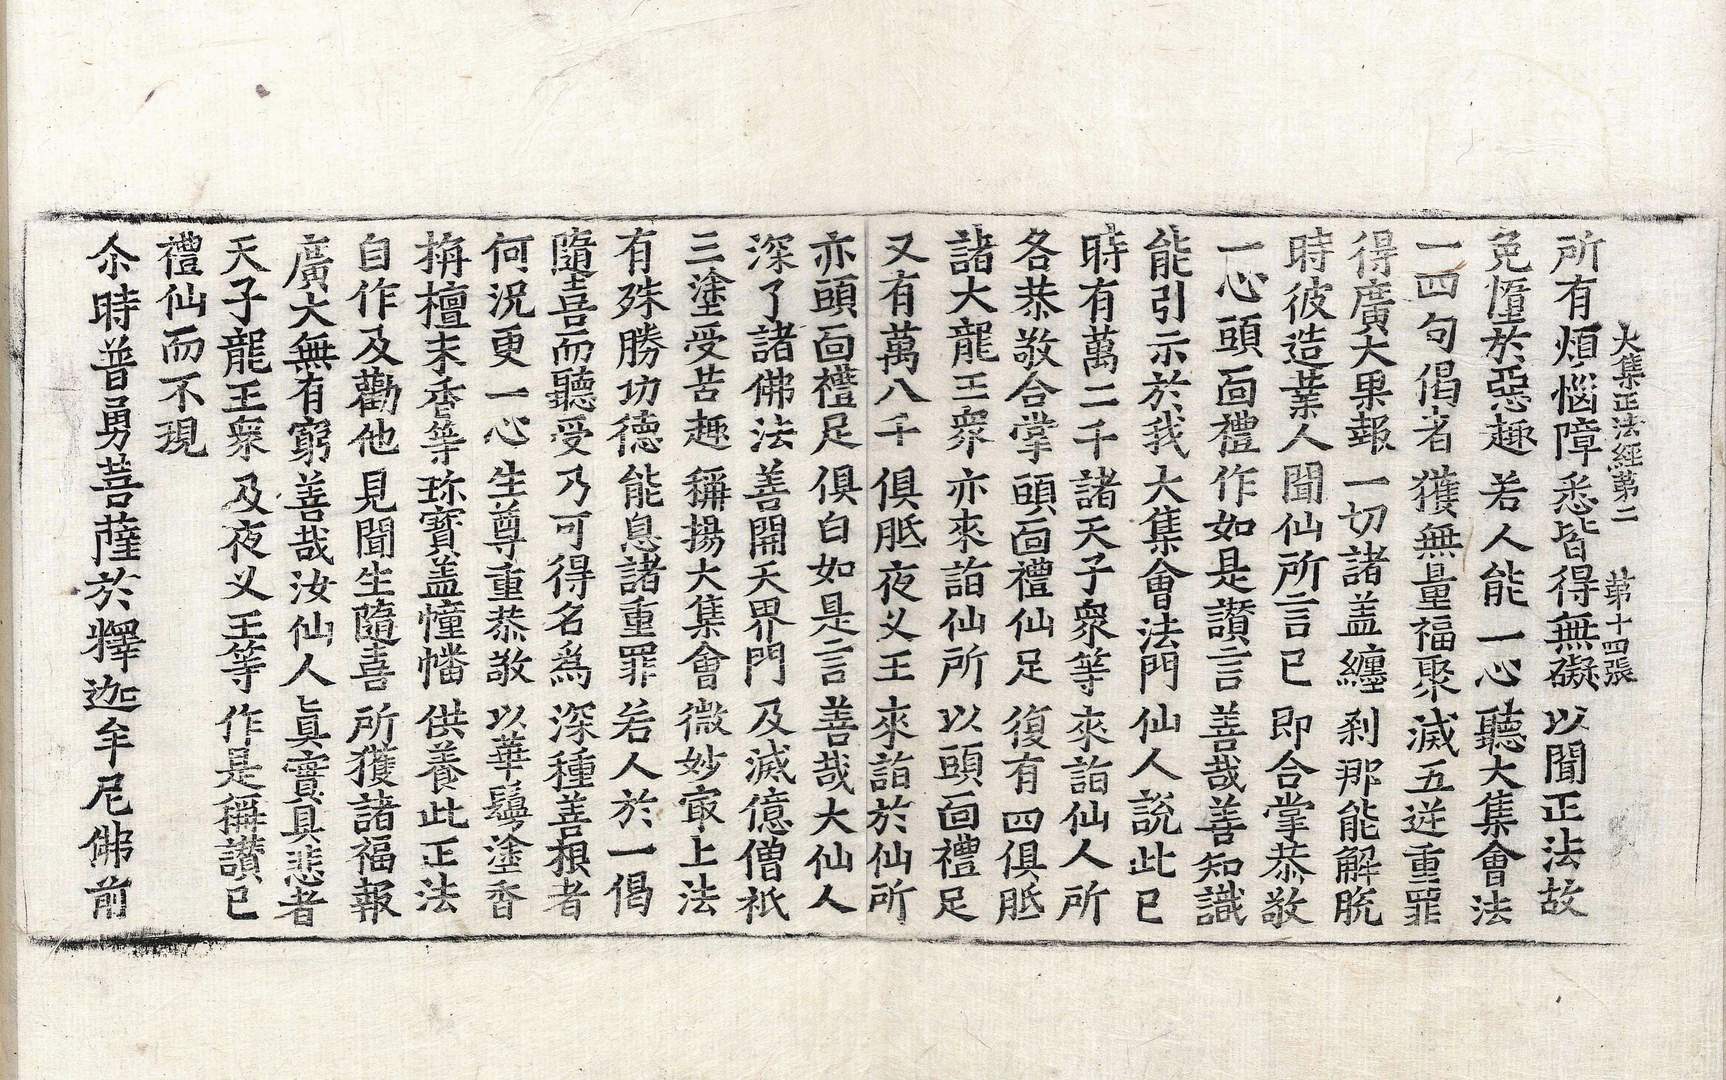 大集正法經第二 第十四張
所有煩惱障悉皆得無礙 以聞正法故
免墮於惡趣 若人能一心 聽大集會法
一四句偈者 獲無量福聚 滅五逆重罪
得廣大果報 一切諸盖纏 刹那能解脫
時彼造業人 聞仙所言已 即合掌恭敬
一心頭面禮 作如是讃言 善哉善知識
能引示於我 大集會法門 仙人說此已
時有萬二千 諸天子衆等 來詣仙人所
各恭敬合掌 頭面禮仙足 復有四俱胝
諸大龍王衆 亦來詣仙所 以頭面禮足
又有萬八千 俱胝夜叉王 來詣於仙所
亦頭面禮足 俱白如是言 善哉大仙人
深了諸佛法 善開天界門 及滅億僧祇
三塗受苦趣 稱揚大集會 微妙㝡上法
有殊勝功德 能息諸重罪 若人於一偈
隨喜而聽受 乃可得名爲 深種善根者
何況更一心 生尊重恭敬 以華鬘塗香
栴檀末香等 珎寳盖幢幡 供養此正法
自作及勸他 見聞生隨喜 所獲諸福報
廣大無有窮 善哉汝仙人 眞實具悲者
天子龍王衆 及夜叉王等 作是稱讃已
禮仙而不現
尒時普勇菩薩於釋迦牟尼佛前